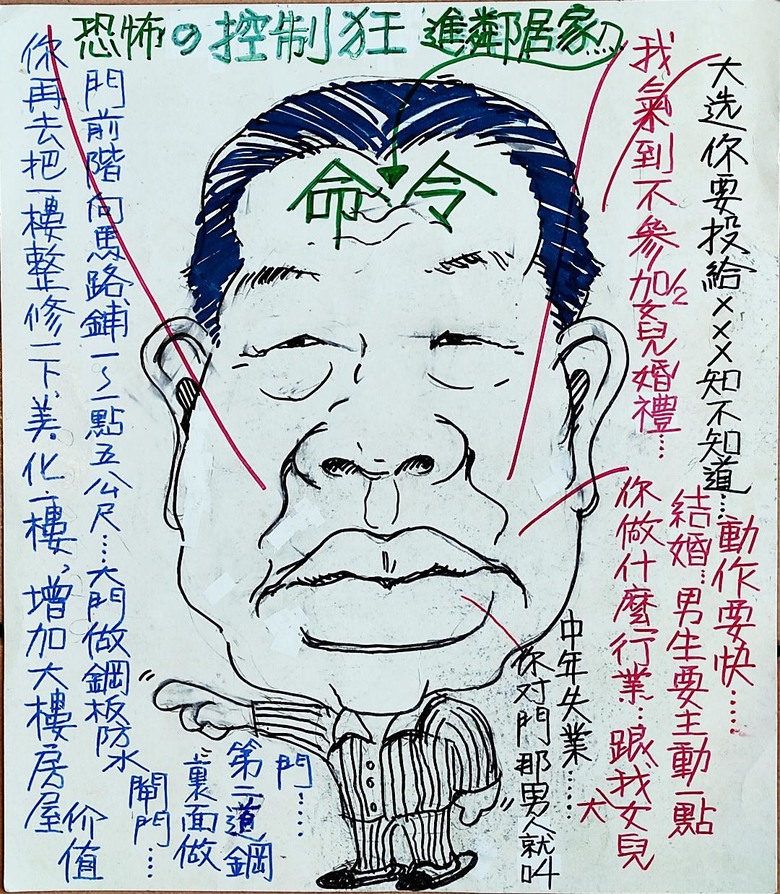 恐怖の控制狂 進鄰居家の
命令
大選你要投給×××知不知道…
動作要快……
結婚…男生要主動一點
我氣到不參加1/2女兒婚禮…
你做什麼行業…跟我大女兒
中年失業……
你對門那男人就叫
門前階向馬路鋪一~一點五公尺……大門做鋼板防水
閘門…
裏面做
第二道鋼
門…
你再去把一樓整修一下、美化一樓，增加大樓房屋
价值